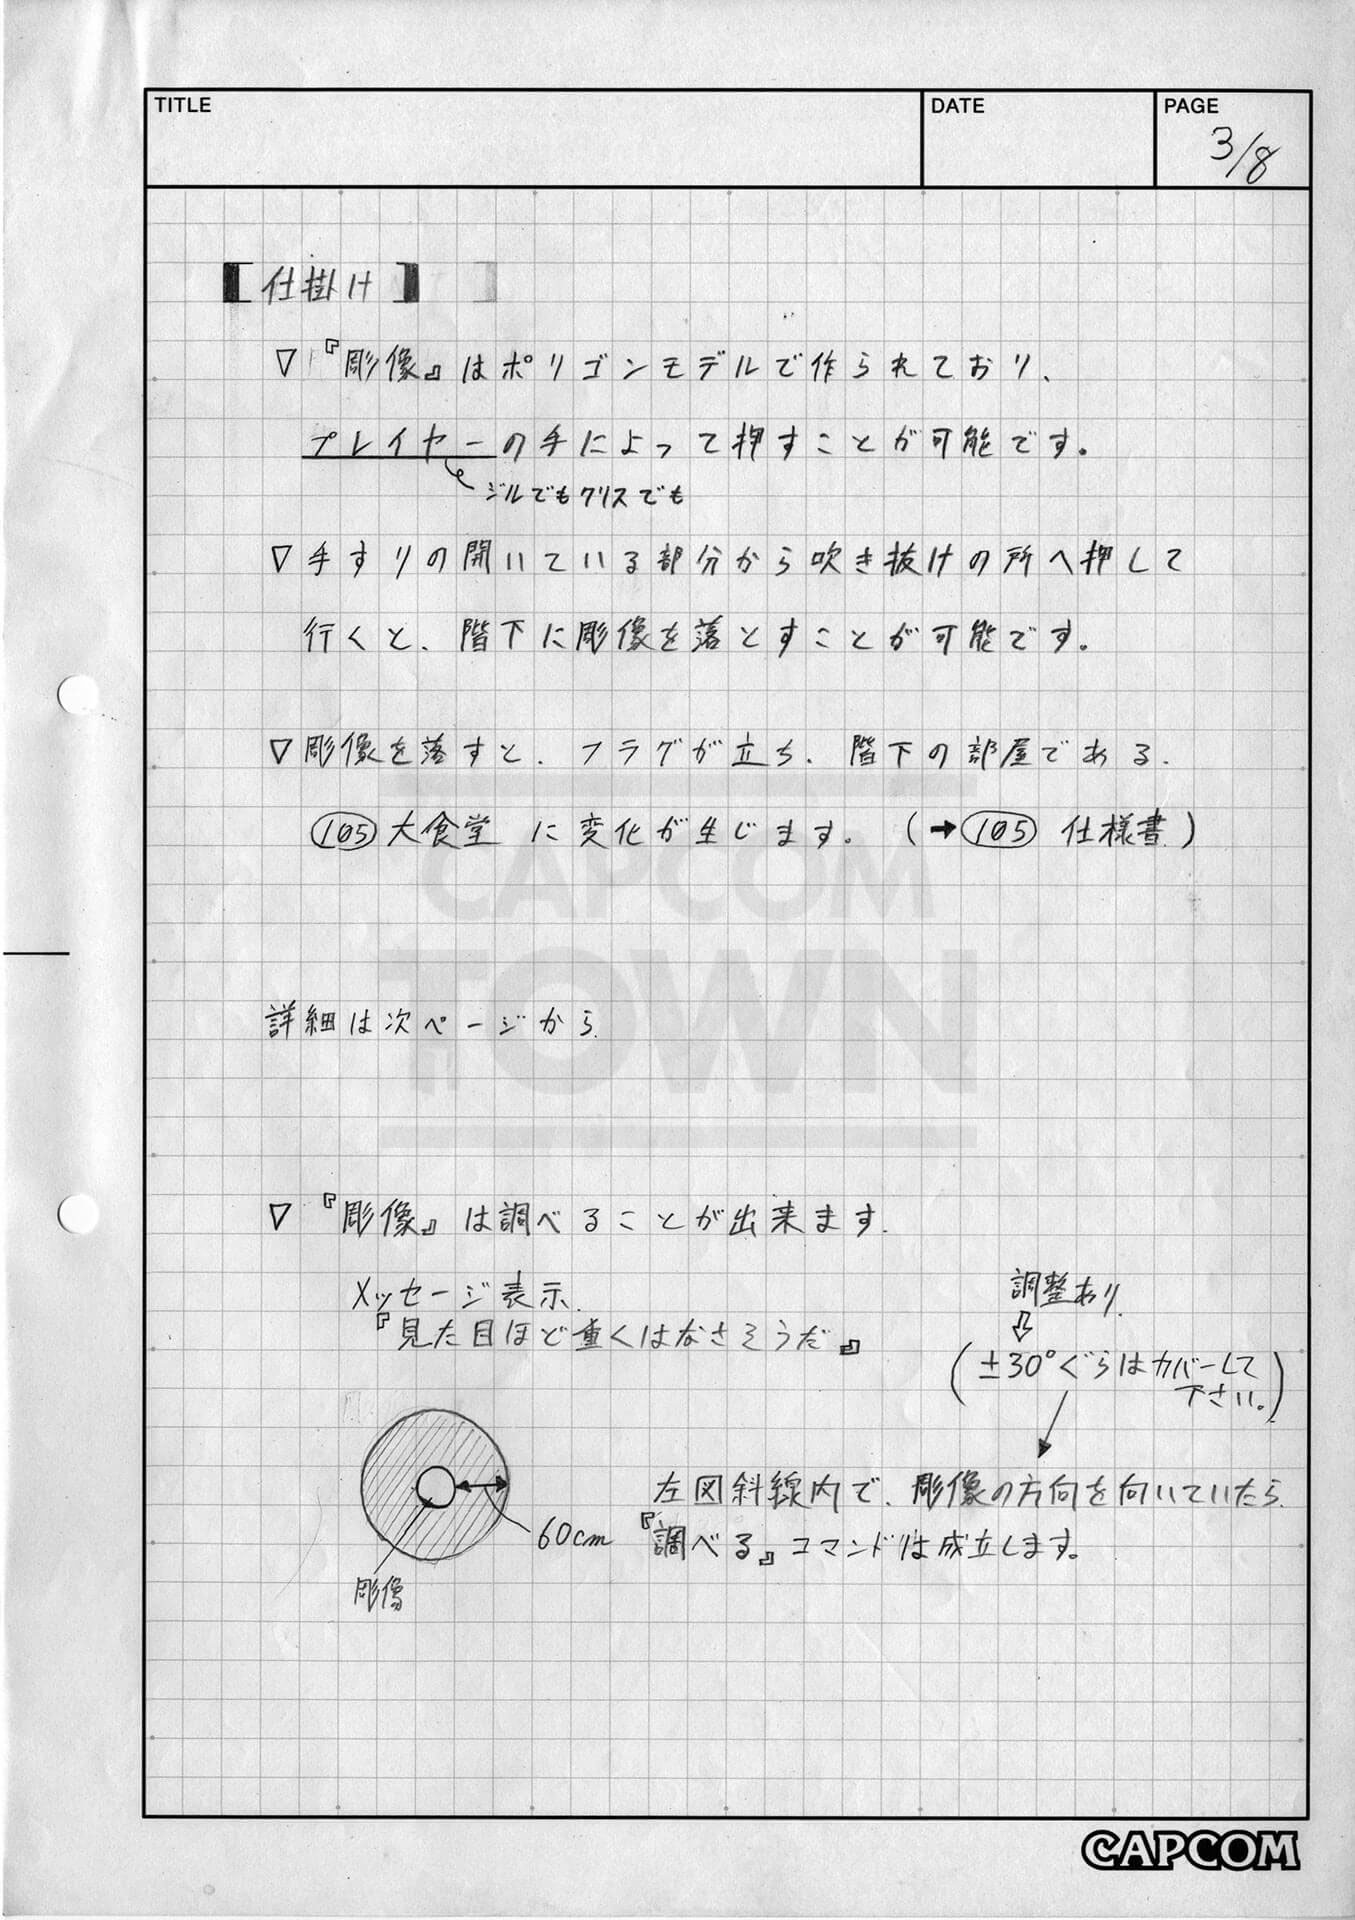 TITLE
DATE
PAGE
3/8
【仕掛け】
▽『彫像』はポリゴンモデルで作られており、
プレイヤーの手によって押すことが可能です。
ジルでもクリスでも
▽手すりの開いている部分から吹き抜けの所へ押して
行くと、階下に彫像を落とすことが可能です。
▽彫像を落すと、フラグが立ち、階下の部屋である、
105 大食堂 に変化が生じます。(➡105 仕様書)
CAPCOM
TOWN
詳細は次ページから
▽『彫像』は調べることが出来ます。
メッセージ表示
『見た目ほど重くはなさそうだ』
調整あり
(±30°ぐらはカバーして
下さい。)
左図斜線内で、彫像の方向を向いていたら
60cm
『調べる』コマンドは成立します。
彫像
CAPCOM